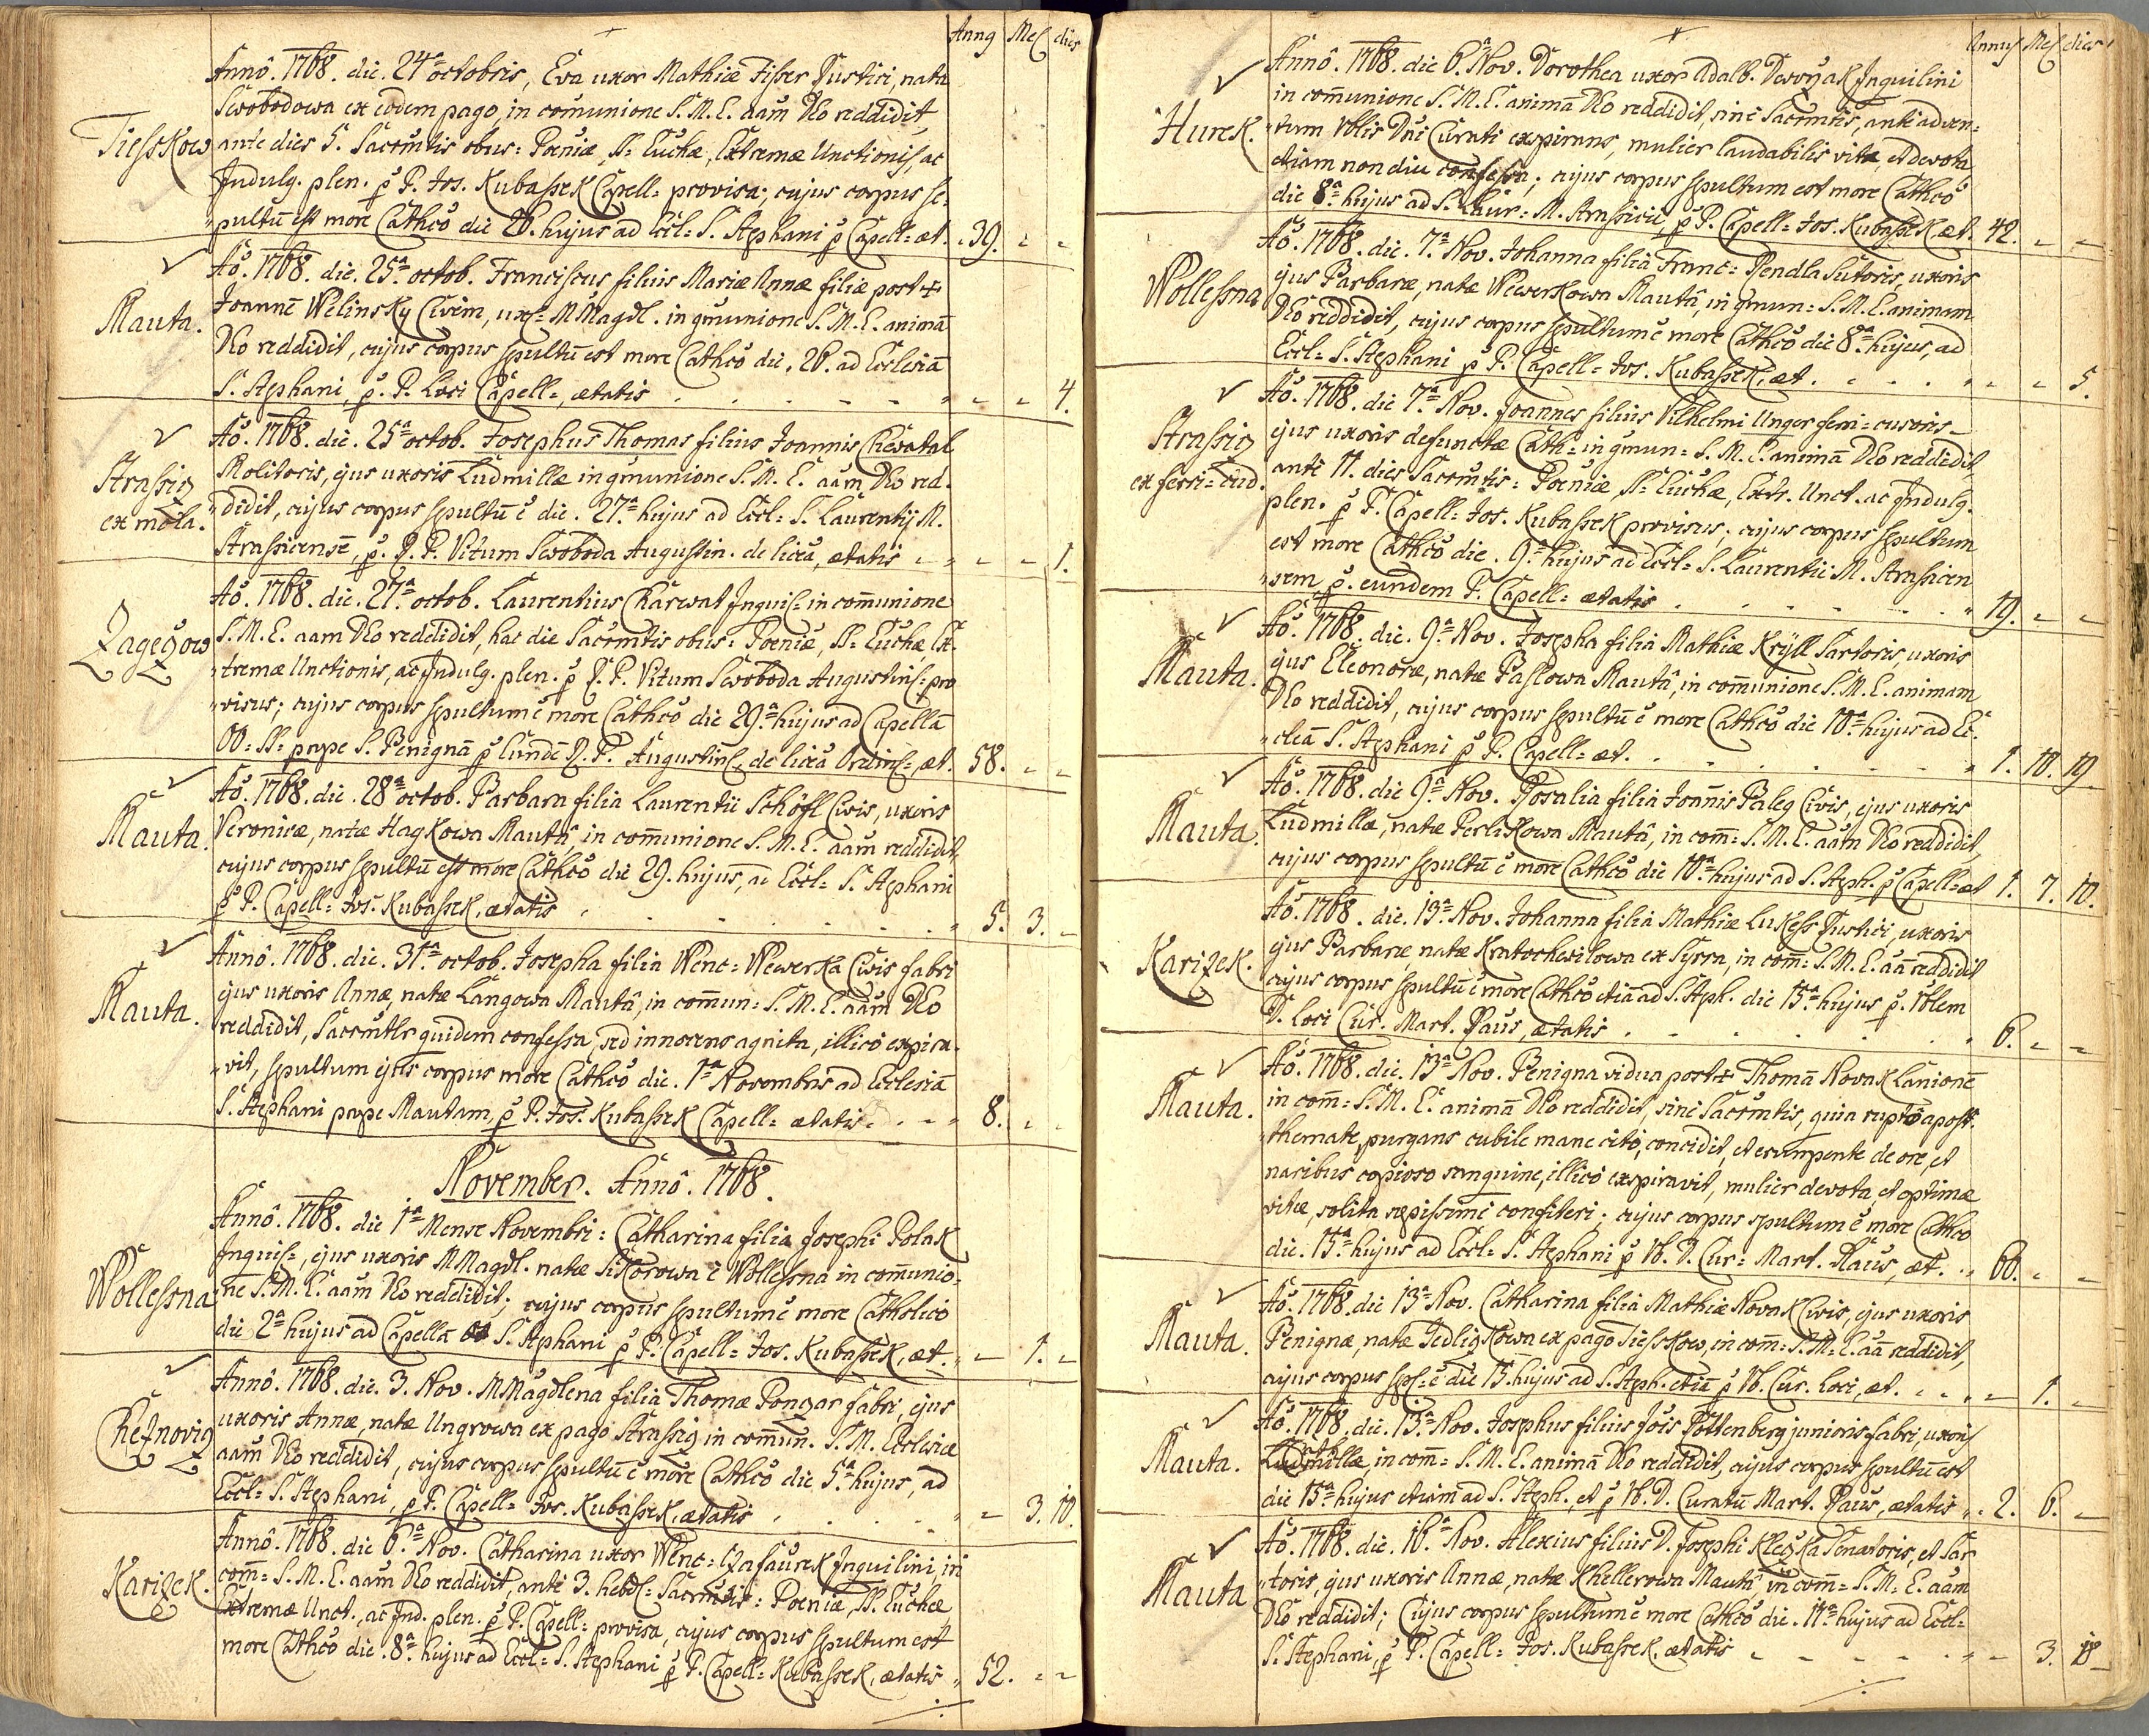 Anng Mes dies
Annô. 1768. die. 24ª octobris, Eva uxor Mathiæ Fisser Rustici, nata
Swobodowa ex eodem pago, in comunione S. M. E. aam Deo reddidit,
Tiesskow ante dies 5. Sacrmtis obus: Pœniæ, SS= Euchæ, Extremæ Unctionis, ac
Indulg. plen. p P. Jos. Kubassek Capell= provisa; cujus corpus se-
pultu est more Cathco die 26. hujus ad Eccl= S. Stephani p Capell= æt. 39. - -
Aô. 1768. die. 25ª octob. Franciscus filius Mariæ Annæ filiæ post +
Mauta. Joanne Welinsky Civem, ux= M Magdl. in gmunione S. M. E. anima
Deo reddidit, cujus corpus spultu est more Cathco die. 26. ad Ecclesia
S. Stephani, p. P. Loci Capell=, ætatis - - 4.
Aô. 1768. die. 25ª octob. Josephus Thomas filius Joannis Chwatal
Strassig ex mola. Molitoris, ejus uxoris Ludmillæ in gmunione S. M. E. aam Deo red-
didit, cujus corpus spultu e die. 27ª hujus ad Eccl= S. Laurentij M.
Strassicense, p. R. P. Vitum Swoboda Augustin. de licea, ætatis - - 1.
Aô. 1768. die. 27ª octob. Laurentius Charwat Inquil= in communione
Zagegow S. M. E. aam Deo reddidit, hac die Sacrmtis obus: Pœniæ, SS= Euchæ Ex-
tremæ Unctionis, ac Indulg. plen. p R. P. Vitum Swoboda Augustin= pro
visus; cujus corpus spultum e more Cathco die 29ª hujus ad Capella
OO= SS= prope S. Benigna p Eunde R. P. Augustin= de licea Ordin=, æt. 58. - -
Aô. 1768. die. 28ª octob. Barbara filia Laurentii Schöfl Civis, uxoris
Mauta. Veronicæ, natæ Hagkowa Mautâ, in communione S. M. E. aam reddidit,
cujus corpus spultu est more Cathco die 29. hujus, ad Eccl= S. Stephani
p P. Capell= Jos. Kubassek, ætatis 5. 3. -
Annô. 1768. die. 31ª octob. Josepha filia Wenc= Wewerka Civis fabri
Mauta. ejus uxoris Annæ, natæ Langowa Mautâ, in commun= S. M. E. aam Deo
reddidit, Sacrmtlr quidem confessa, sed innocens agnita, illico expira-
vit, spultum ejus corpus more Cathco die. 1ª Novembris ad Ecclesia
S. Stephani prope Mautam, p P. Jos. Kubassek Capell= ætatis 8. - -
November. Annô. 1768.
Annô. 1768. die 1ª Mense Novembri: Catharina filia Josephi Polak
Inquil=, ejus uxoris M Magdl. natæ Sikorowa e Wollessna in communio-
Wollessna ne S. M. E. aam Deo reddidit; cujus corpus spultum e more Catholico
die 2ª hujus ad Capella S. Stephani p P. Capell= Jos. Kubassek, æt. - 1. -
Annô. 1768. die. 3. Nov. M Magdlena filia Thomæ Pongar fabri, ejus
Cheznovig uxoris Annæ, natæ Ungrowa ex pago Strassig in commun. S. M. Ecclesiæ
aam Deo reddidit, cujus corpus spultu e more Cathco die 5ª hujus, ad
Eccl= S. Stephani, p P. Capell= Jos. Kubassek, ætatis - 3. 10.
Annô. 1768. die 6ª Nov. Catharina uxor Wenc= Czasaurek Inquilini, in
Karizek. com= S. M. E. aam Deo reddidit, ante 3. hebd= Sacrmtis: Pœniæ, SS. Euchæ
Extremæ Unct., ac Ind. plen. p P. Capell= provisa, cujus corpus spultum est
more Cathco die. 8ª hujus ad Eccl= S. Stephani p P. Capell= Kubassek, ætatis 52. - -
Annus Mes dies
Annô. 1768. die 6ª Nov. Dorothea uxor Adalb. Dworzak Inquilini
Hurek. in communione S. M. E. anima Deo reddidit, sine Sacrmtis, ante adven-
tum Vblis Dni Curati exspirans, mulier laudabilis vitæ, et devota
etiam non diu confessa; cujus corpus spultum est more Cathco
die 8ª hujus ad S. Laur= M. Strassicii, p P. Capell= Jos. Kubassek, æt. 42. - -
Aô. 1768. die. 7ª Nov. Johanna filia Franc= Rendla Sutoris, uxoris
Wollessna ejus Barbaræ, natæ Wewerkowa Mautâ, in gmun= S. M. E. animam
Deo reddidit, cujus corpus spultum e more Cathco die 8ª hujus, ad
Eccl= S. Stephani p P. Capell= Jos. Kubassek, æt. - - 5.
Aô. 1768. die 7ª Nov. Joannes filius Vilhelmi Unger ferri= cusoris
Strassig ex ferri= cud. ejus uxoris defunctæ Cath= in gmun= S. M. E. anima Deo reddidit,
ante 11. dies Sacrmtis: Pœniæ, SS= Euchæ, Extr. Unct. ac Indulg.
plen. p P. Capell= Jos. Kubassek provisus; cujus corpus spultum
est more Cathco die. 9ª hujus ad Eccl= S. Laurentii M. Strassicen
sem p. eundem P. Capell= ætatis 19. - -
Aô. 1768. die. 9ª Nov. Josepha filia Mathiæ Krÿll Sartoris, uxoris
Mauta. ejus Eleonoræ, natæ Paslowa Mautâ, in communione S. M. E. animam
Deo reddidit, cujus corpus spultu e more Cathco die 10ª hujus ad Ec-
clea S. Stephani p P. Capell= æt. 1. 10. 19
Aô. 1768. die 9ª Nov. Rosalia filia Joannis Paleg Civis, ejus uxoris
Mauta. Ludmillæ, natæ Perlikowa Mautâ, in com= S. M. E. aam Deo reddidit,
cujus corpus spultu e more Cathco die 10ª hujus ad S. Steph. p Capell= æt 1. 7. 10.
Aô. 1768. die. 13ª Nov. Johanna filia Mathiæ Lukess Rustici, uxoris
Karizek. ejus Barbaræ natæ Kratochwilowa ex Syrra, in com= S. M. E. aa reddidit
cujus corpus spultu e more Cathco etia ad S. Steph. die 15ª hujus p. Vblem
D. Loci Cur. Mart. Raus, ætatis 6. - -
Aô. 1768. die. 13ª Nov. Benigna vidua post + Thoma Novak Lanione
Mauta. in com= S. M. E. anima Deo reddidit, sine Sacrmtis, quia rupto apost-
themate, purgans cubile mane cito, concidit, et erumpente de ore, et
naribus copioso sanguine, illico exspiravit, mulier devota, et optimæ
vitæ, solita sæpissime confiteri; cujus corpus spultum e more Cathco
die. 15ª hujus ad Eccl= S. Stephani p Vb. D. Cur= Mart. Raus, æt. 66. - -
Aô. 1768. die 13ª Nov. Catharina filia Mathiæ Novak Civis, ejus uxoris
Mauta. Benignæ, natæ Jedligkowa ex pago Tiesskow, in com= S. M. E. aa reddidit,
cujus corpus spl= e die 15. hujus ad S. Steph. etia p Vb. Cur. Loci, æt. - 1. -
Aô. 1768. die. 13ª Nov. Josephus filius Jois Pottenberg junioris fabri, uxoris
Mauta. Ludmillæ, in com= S. M. E. anima Deo reddidit, cujus corpus spultu est
die 15ª hujus etiam ad S. Steph., et p Vb. D. Curatu Mart. Raus, ætatis 2. 6. -
Aô. 1768. die. 16ª Nov. Alexius filius D. Josephi Kleczka Senatoris, et Sar
Mauta toris, ejus uxoris Annæ, natæ Khellerowa Mautâ in com= S. M. E. aam
Deo reddidit; Cujus corpus spultum e more Cathco die. 17ª hujus ad Eccl=
S. Stephani, p P. Capell= Jos. Kubassek, ætatis - 3. 18